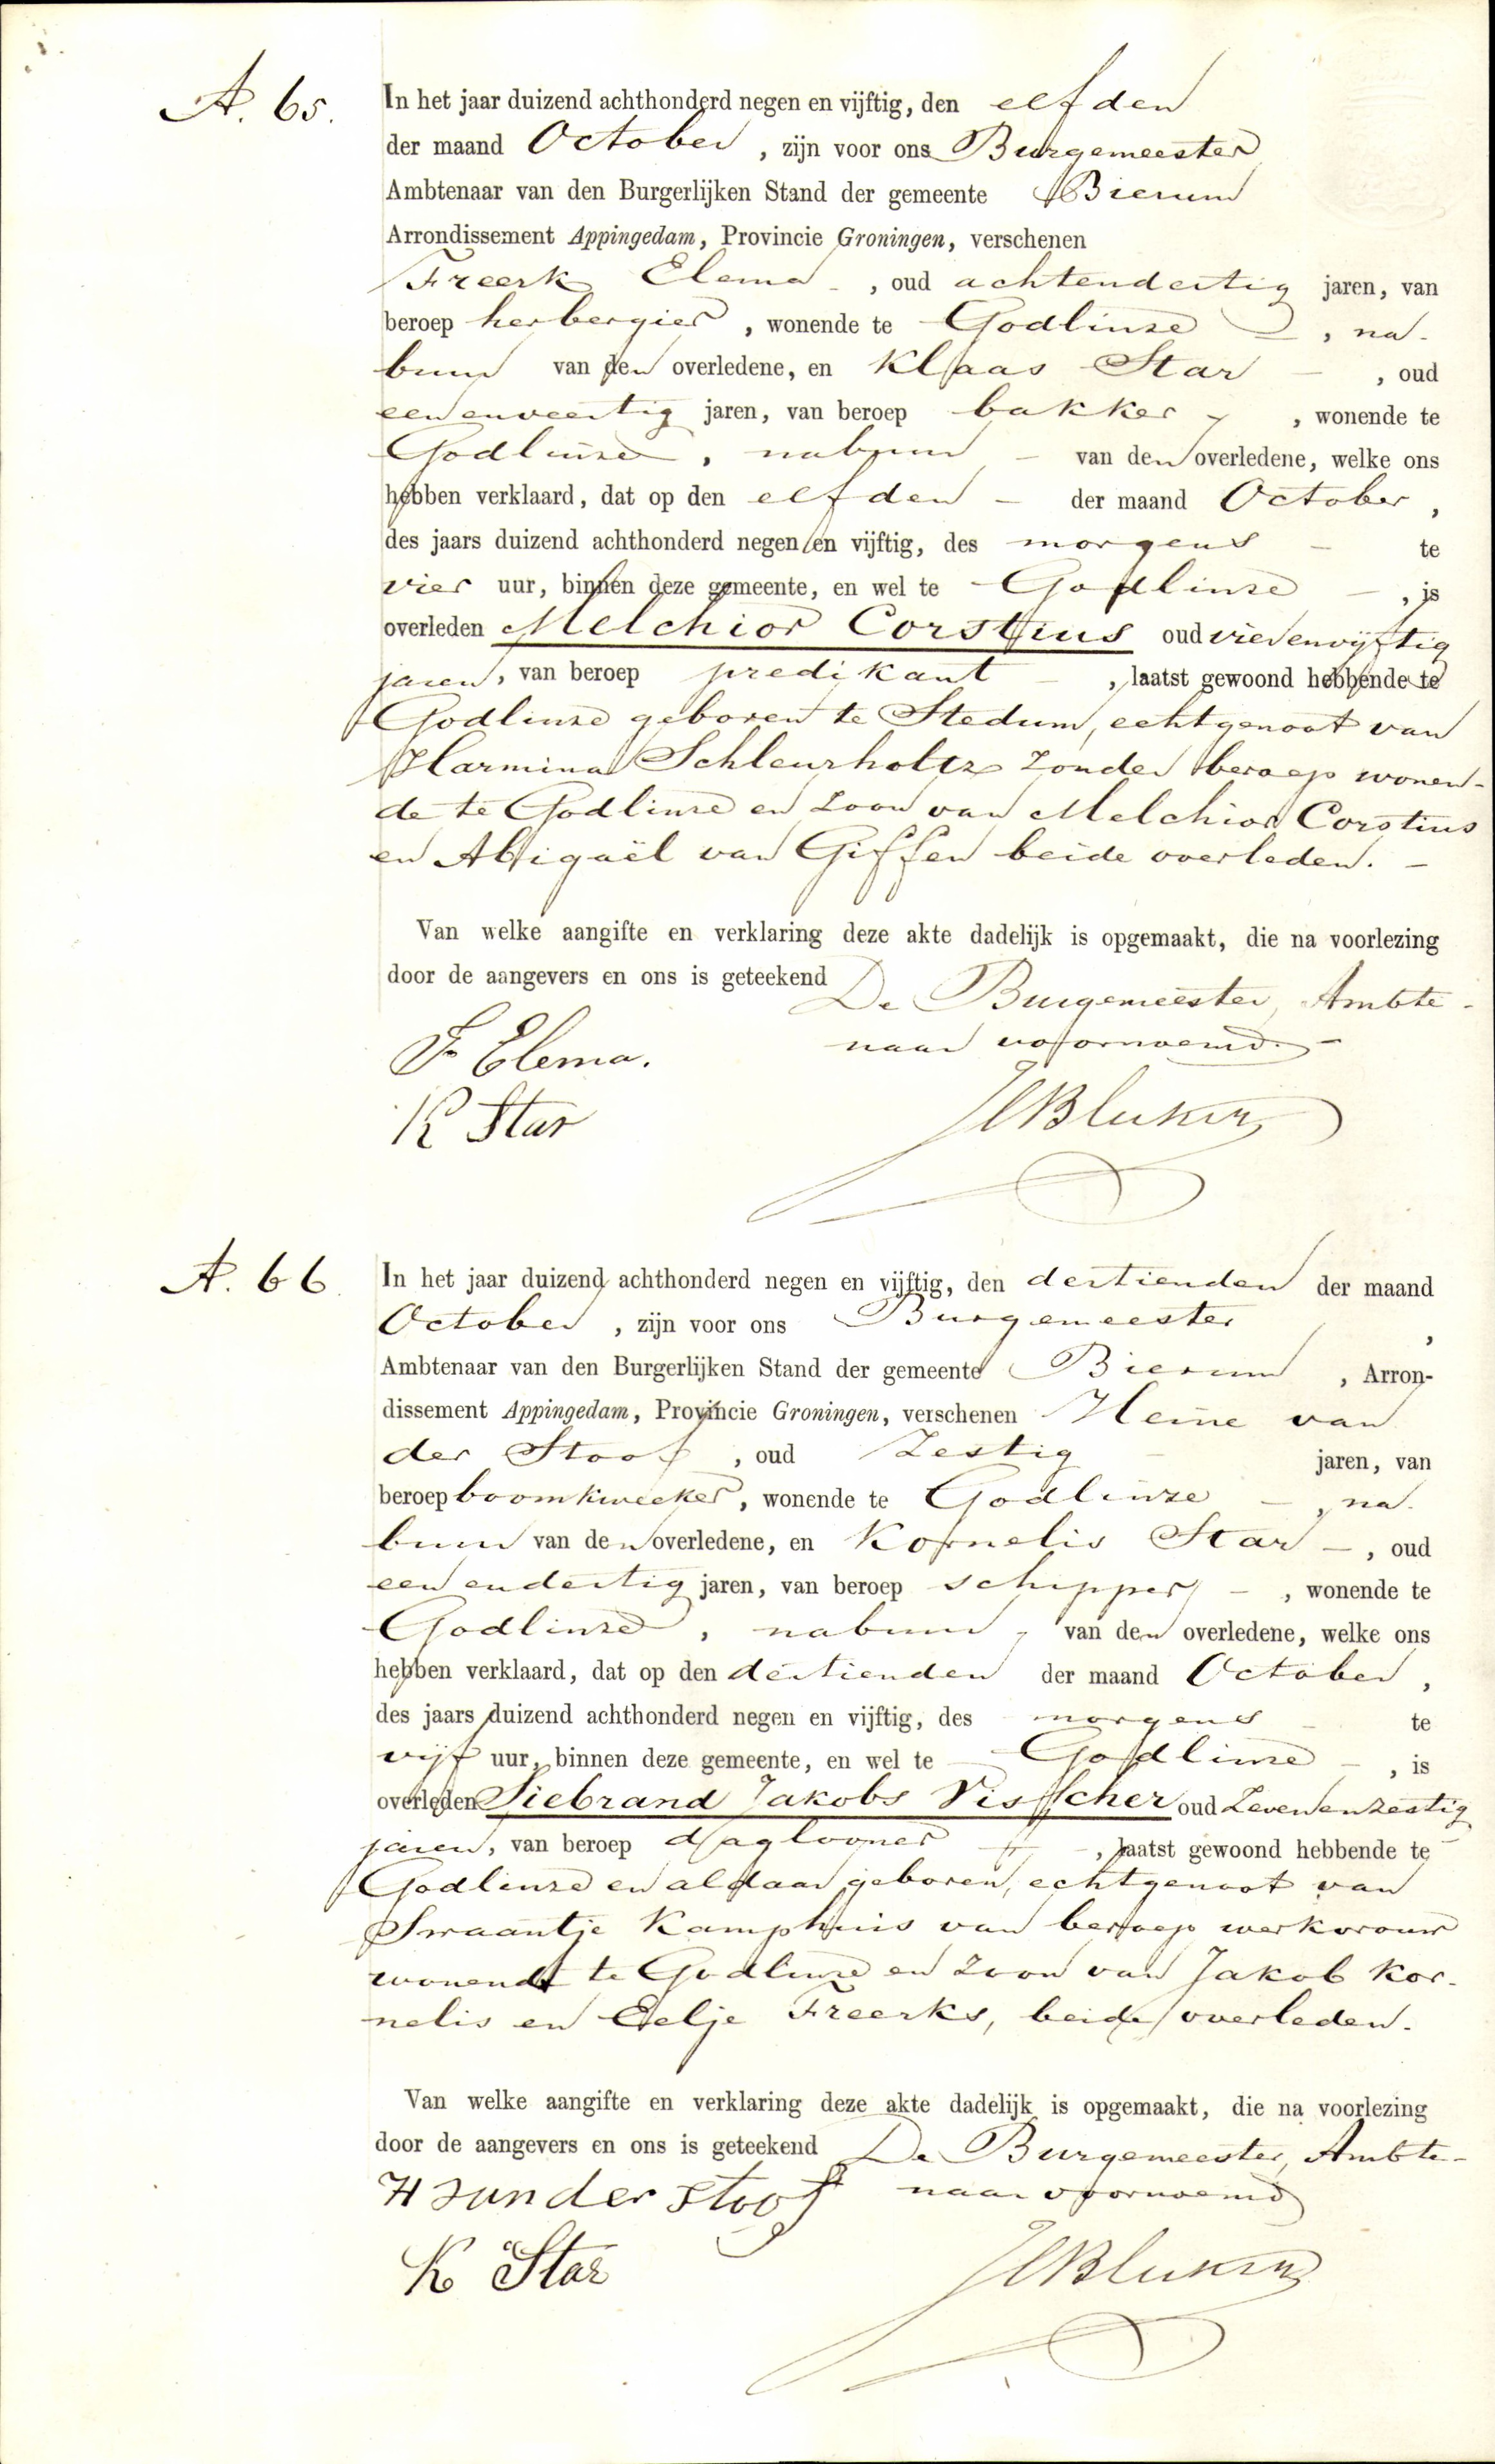 A. 65.
In het jaar duizend achthonderd negen en vijftig, den elfden
der maand October, zijn voor ons Burgemeester
Ambtenaar van den Burgerlijken Stand der gemeente Bierum
Arrondissement Appingedam, Provincie Groningen, verschenen
Freerk Elema, oud achtendertig jaren, van
beroep herbergier, wonende te Godlinze, na-
buur van den overledene, en Klaas Star, oud
eenenveertig jaren, van beroep bakker, wonende te
Godlinze, nabuur van den overledene, welke ons
hebben verklaard, dat op den elfden der maand October,
des jaars duizend achthonderd negen en vijftig, des morgens te
vier uur, binnen deze gemeente, en wel te Godlinze, is
overleden Melchior Corstius oud vierenvijftig
jaren, van beroep predikant, laatst gewoond hebbende te
Godlinze geboren te Stedum, echtgenoot van
Harmina Schleurholtz zonder beroep wonen-
de te Godlinze en zoon van Melchior Corstius
en Abigaël van Giffen beide overleden.
Van welke aangifte en verklaring deze akte dadelijk is opgemaakt, die na voorlezing
door de aangevers en ons is geteekend De Burgemeester, Ambte-
naar voornoemd.
F Elema.
K Star
A. 66.
In het jaar duizend achthonderd negen en vijftig, den dertienden der maand
October, zijn voor ons Burgemeester,
Ambtenaar van den Burgerlijken Stand der gemeente Bierum, Arron-
dissement Appingedam, Provincie Groningen, verschenen Heine van
der Stoof, oud zestig jaren, van
beroep boomkweeker, wonende te Godlinze, na-
buur van den overledene, en Kornelis Star, oud
eenendertig jaren, van beroep schipper, wonende te
Godlinze, nabuur van den overledene, welke ons
hebben verklaard, dat op den dertienden der maand October,
des jaars duizend achthonderd negen en vijftig, des morgens te
vijf uur, binnen deze gemeente, en wel te Godlinze, is
overleden Siebrand Jakobs Visscher oud zevenenzestig
jaren, van beroep daglooner, laatst gewoond hebbende te
Godlinze en aldaar geboren, echtgenoot van
Swaantje Kamphuis van beroep werkvrouw
wonende te Godlinze en zoon van Jakob Kor-
nelis en Eelje Freerks, beide overleden.
Van welke aangifte en verklaring deze akte dadelijk is opgemaakt, die na voorlezing
door de aangevers en ons is geteekend De Burgemeester, Ambte-
naar voornoemd
H van der Stoof
K Star